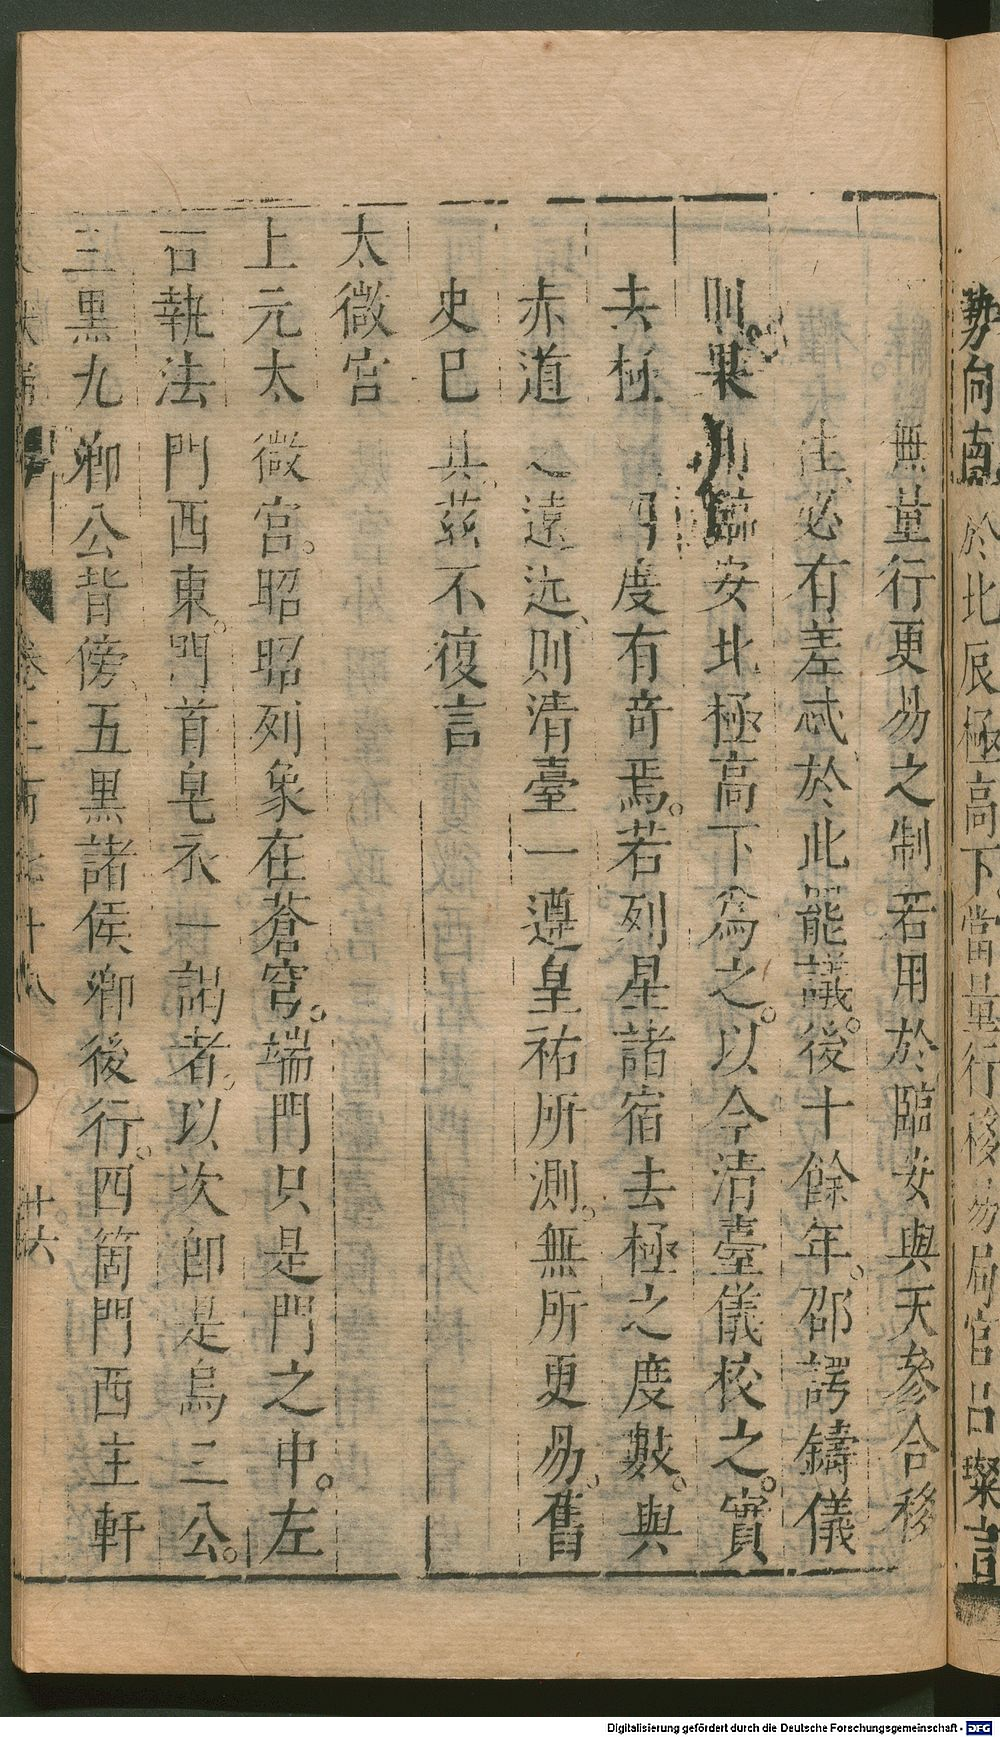 勢向南於北辰極高下當量行移易局官呂璨言
無量行更易之制若用於臨安與天參合移
往必有差忒於此罷議。後十餘年、邵諤鑄儀
則果用臨安北極高下為之。以今清臺儀校之。實
去極四度有奇焉。若列星諸宿去極之度數。與
赤道之遠近、則清臺一遵皇祐所測。無所更易、舊
史巳具茲不復言
太微宮
上元太微宮。昭昭列象在蒼穹。端門只是門之中。左
右執法門西東。門首皂衣一謁者。以次即是烏三公。
三黑九卿公背傍、五黑諸侯卿後行。四箇門西主軒
卷之
十八
廿六
Digitalisierung gefördert durch die Deutsche Forschungsgemeinschaft - DFG